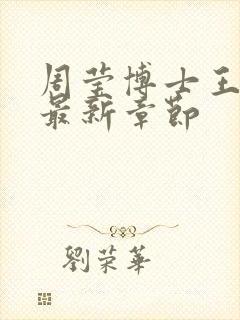 周莹博士王
最新章节
劉荣華